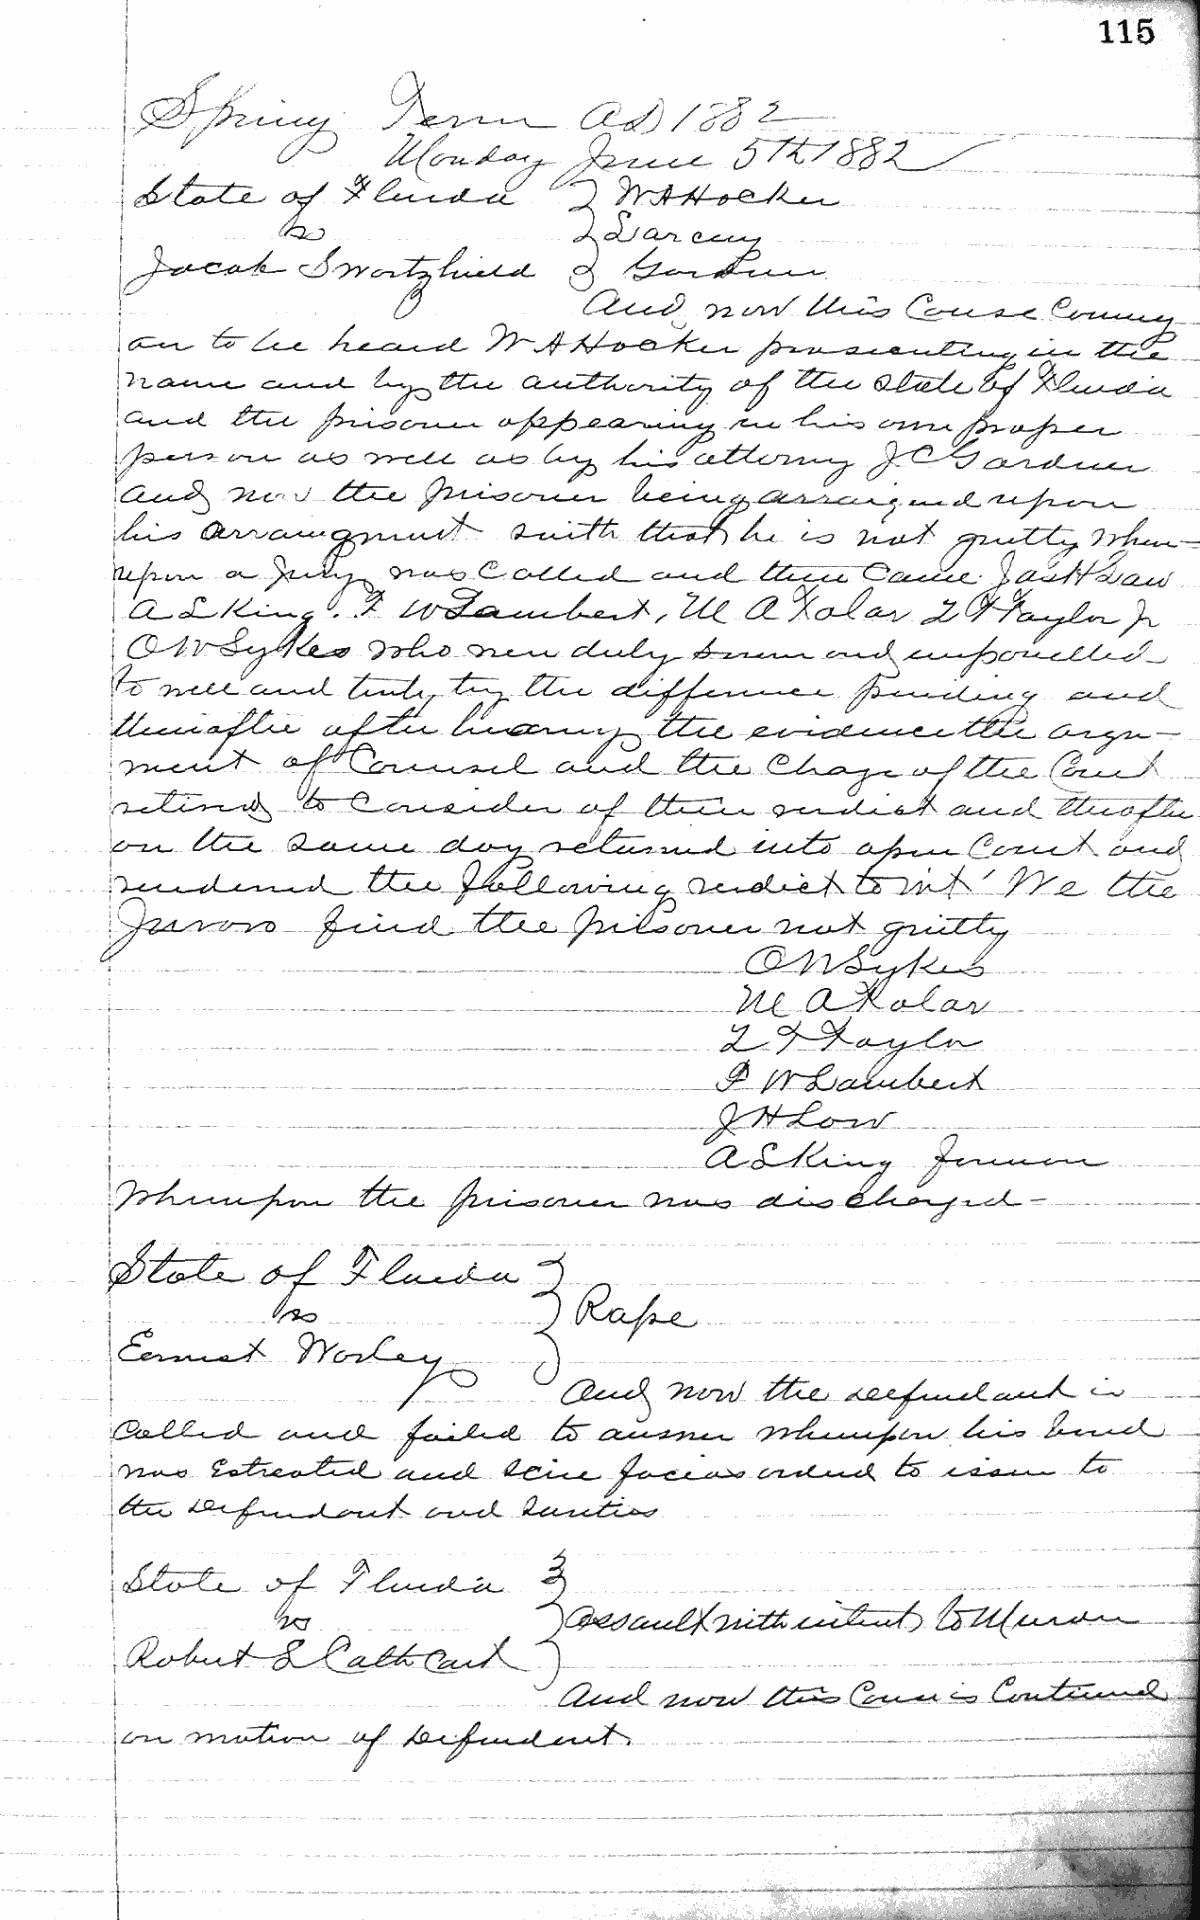 115
Spring Term AD 1882
Monday June 5th 1882
State of Florida } W A Hocker
vs } Larceny
Jacob Swortzhield } Gardner
And now this Cause Coming
on to be heard W A Hocker prosecuting in the
name and by the authority of the State of Florida
and the prisoner appearing in his own proper
person as well as by his attorny J C Gardner
and now the prisoner being arraigned upon
his arraingment saith that he is not guilty when-
upon a Jury was Called and then Came Jas H Law
A L King. F W Lambert, M A Kolar L T Taylor Jr
O W Sykes who were duly sworn and empanelled
to well and truly try the difference pending and
thereafter after hearing the evidence the argu-
ment of Counsel and the Charge of the Court
retired to Consider of their verdict and thereafter
on the same day returned into open Court and
rendered the following verdict to wit' We the
Jurors find the prisoner not guilty
O W Sykes
M A Kolar
L T Taylor
F W Lambert
J H Low
A L King Foreman
Whereupon the prisoner was discharged -
State of Florida }
vs } Rape
Earnest Worley }
And now the defendant is
Called and failed to answer whereupon his bond
was Estreated and Scire facias ordered to issue to
the Defendant and Sureties
State of Florida }
vs } Assault with intent to Murder
Robert S Cathcart }
And now this Cause is Continued
on motion of Defendant.